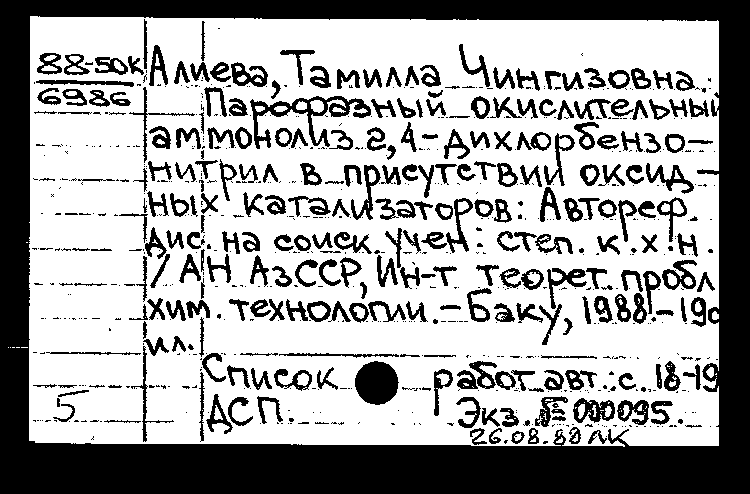 88-50к
6986
Алиева, Тамилла Чингизовна.
Парофазный окислительный
аммонолиз 2,4-дихлорбензо-
нитрил в присутствии оксид-
ных катализаторов: Автореф.
дис. на соиск. учен: степ. к.х.н.
/ АН АзССР, Ин-т теорет. пробл
хим. технологии. - Баку, 1988. - 19с
ил.
Список работ авт.: с. 18-19
5
ДСП. Экз. № 000095.
26.08.89 ЛК